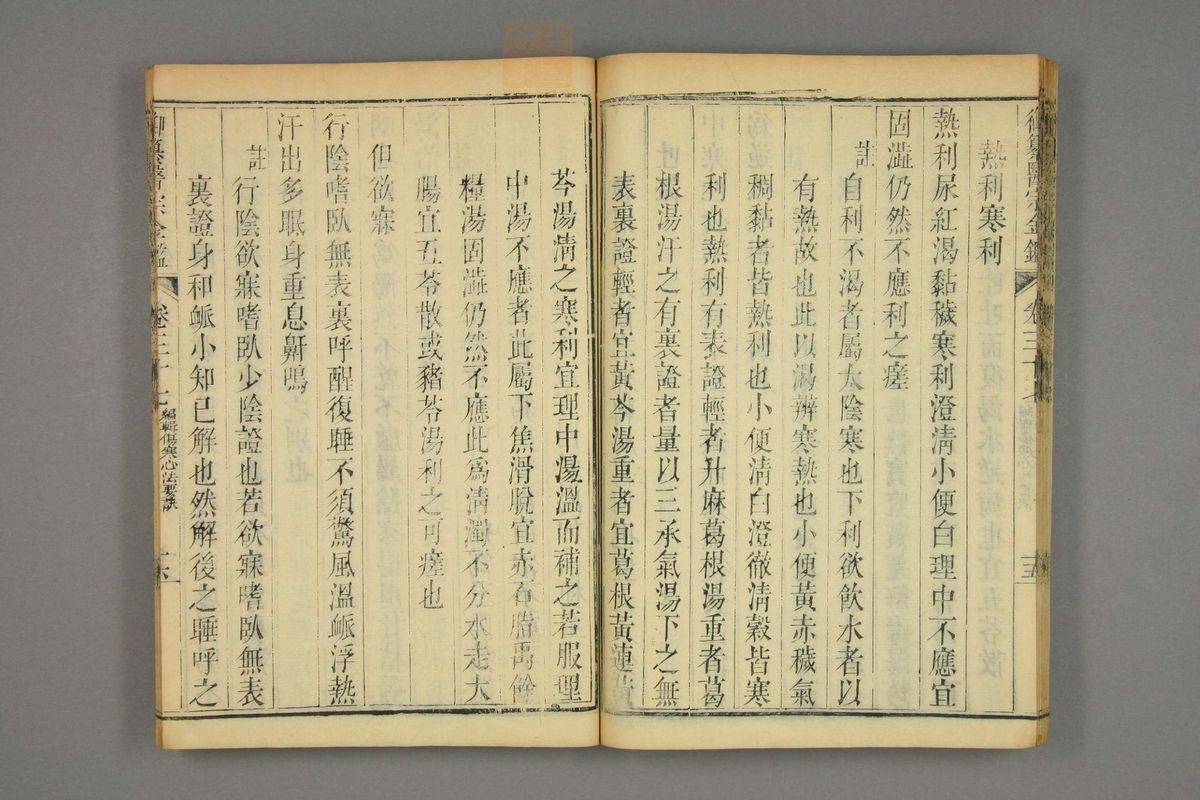 御纂醫宗金鑑 卷三十七 十五
熱利寒利
熱利尿紅渴黏穢寒利澄清小便白理中不應宜
固澁仍然不應利之瘥
註
自利不渴者屬太陰寒也下利欲飲水者以
有熱故也此以渴辨寒熱也小便黃赤穢氣
稠黏者皆熱利也小便清白澄徹清穀皆寒
利也熱利有表證輕者升麻葛根湯重者葛
根湯汗之有裏證者量以三承氣湯下之無
表裏證輕者宜黃芩湯重者宜葛根黃連黃
芩湯淸之寒利宜理中湯溫而補之若服理
中湯不應者此屬下焦滑脫宜赤石脂禹餘
糧湯固澁仍然不應此爲淸濁不分水走大
腸宜五苓散或豬苓湯利之可瘥也
但欲寐
行陰嗜臥無表裏呼醒復睡不須驚風溫脈浮熱
汗出多眠身重息鼾鳴
註
行陰欲寐嗜臥少陰證也若欲寐嗜臥無表
裏證身和脈小知已解也然解後之睡呼之
御纂醫宗金鑑 卷三十七 編輯傷寒心法要訣 十六